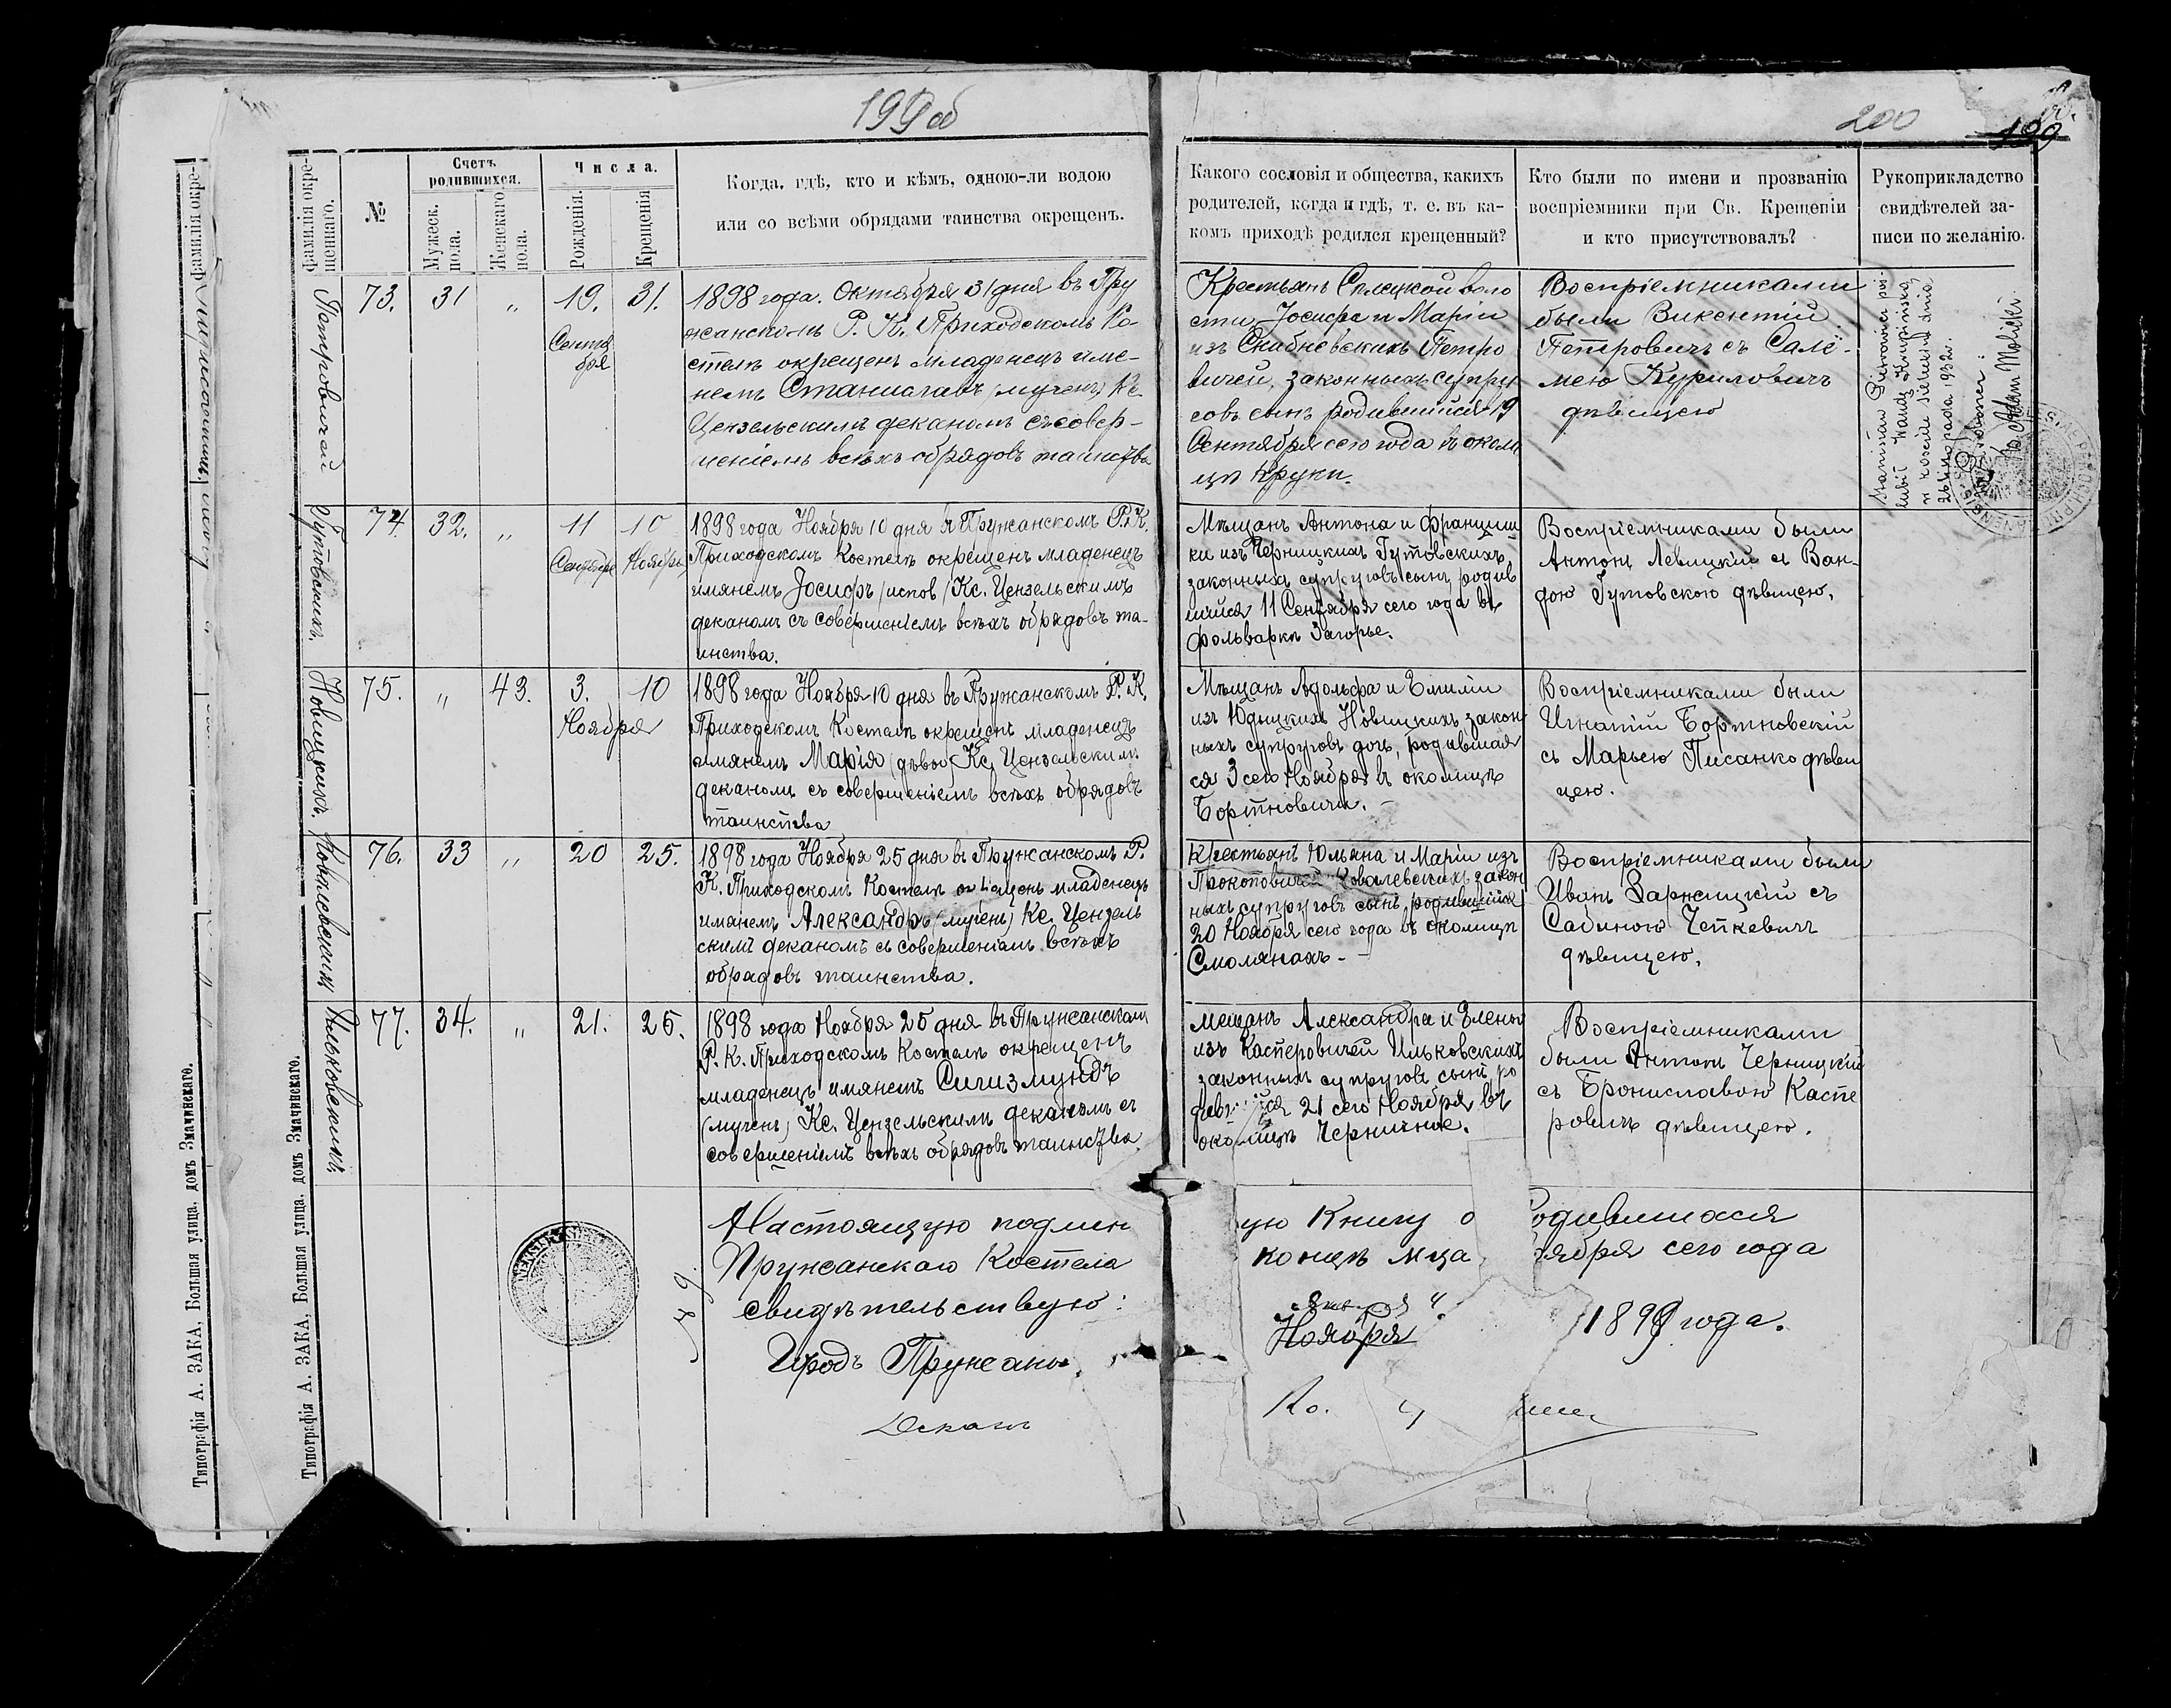 199 об
200
199
Фамилія окре-
щеннаго.
№
Счетъ
родившихся.
Мужеск.
пола.
Женскаго
пола.
Числа.
Рожденія.
Крещенія
Когда, гдѣ, кто и кѣмъ, одною-ли водою
или со всѣми обрядами таинства окрещенъ.
Какого сословія и общества, какихъ
родителей, когда и гдѣ, т. е. въ ка-
комъ приходѣ родился крещенный?
Кто были по имени и прозванію
воспріемники при Св. Крещеніи
и кто присутствовалъ?
Рукоприкладство
свидѣтелей за-
писи по желанію.
Петровичей
73. 31 " 19. 31.
Сентя
бря
1898 года. Октября 31 дня въ Пру
жанскомъ Р. К. Приходскомъ Ко-
стелѣ окрещенъ младенецъ име-
немъ Станиславъ (мучен.) Кс.
Цензельскимъ деканомъ съ совер-
шеніемъ всѣхъ обрядовъ таинства
Крестьянъ Селецкой воло
сти Іосифа и Маріи
изъ Скибневскихъ Петро
вичей, законныхъ супру
говъ сынъ родившійся 19
Сентября сего года въ околи
цѣ Круки.
Воспріемниками
были Викентій
Петровичъ съ Сале-
меею Куриловичъ
дѣвицею
Maximilian Pietrowicz poś
lubił Wandę Krupińską
w kościele Sielec dnia
26 listopada 1932 r.
Proboszcz:
ks. Adam Molicki
Гутовскихъ.
74. 32. " 11 10
Сентября Ноября
1898 года Ноября 10 дня въ Пружанскомъ Р. К.
Приходскомъ Костелѣ окрещенъ младенецъ
имянемъ Іосифъ (испов) Кс. Цензельскимъ
деканомъ съ совершеніемъ всѣхъ обрядовъ та-
инства.
Мѣщанъ Антона и Франциш
ки изъ Черницкихъ Гутовскихъ
законныхъ супруговъ сынъ, родив
шійся 11 Сентября сего года въ
фольваркѣ Загорье.
Воспріемниками были
Антонъ Левицкій съ Ван-
дою Гутовскою дѣвицею.
Новицкихъ.
75. " 43. 3. 10
Ноября
1898 года Ноября 10 дня въ Пружанскомъ Р. К.
Приходскомъ Костелѣ окрещенъ младенецъ
имянемъ Марія (дѣва) Кс. Цензельскимъ
деканомъ съ совершеніемъ всѣхъ обрядовъ
таинства
Мѣщанъ Адольфа и Эмиліи
изъ Юдыцкихъ Новицкихъ закон
ныхъ супруговъ дочь, родившая
ся 3 сего Ноября въ околицѣ
Бортновичи. -
Воспріемниками были
Игнатій Бортновскій
съ Марьею Писанко дѣви
цею.
Ковалевскихъ
76. 33 " 20 25.
1898 года Ноября 25 дня въ Пружанскомъ Р.
К. Приходскомъ Костелѣ окрещенъ младенецъ
имянемъ Александръ (мучен.) Кс. Цензель
скимъ деканомъ съ совершеніемъ всѣхъ
обрядовъ таинства.
Крестьянъ Юльяна и Маріи изъ
Прокоповичей Ковалевскихъ закон
ныхъ супруговъ сынъ, родившійся
20 Ноября сего года въ околицѣ
Смолянахъ. -
Воспріемниками были
Иванъ Заржицкій съ
Сабиною Чепкевичъ
дѣвицею.
Ильковскихъ
77. 34. " 21. 25.
1898 года Ноября 25 дня въ Пружанскомъ
Р. К. Приходскомъ Костелѣ окрещенъ
младенецъ имянемъ Сигизмундъ
(мучен.) Кс. Цензельскимъ деканомъ съ
совершеніемъ всѣхъ обрядовъ таинства
Мещанъ Александра и Элены
изъ Касперовичей Ильковскихъ
законныхъ супруговъ сынъ ро
дившійся 21 сего Ноября въ
околицѣ Черничное.
Воспріемниками
были Антонъ Черницкій
съ Брониславою Каспе
ровичъ дѣвицею.
Настоящую подлин ую Книгу о Родившихся
Пружанскаго Костела конецъ мца ября сего года
свидѣтельствую:
Городъ Пружаны. Ноября 1898 года.
Деканъ
Типографія А. ЗАКА, Большая улица, домъ Значинскаго.
Типографія А. ЗАКА, Большая улица, домъ Значинскаго.